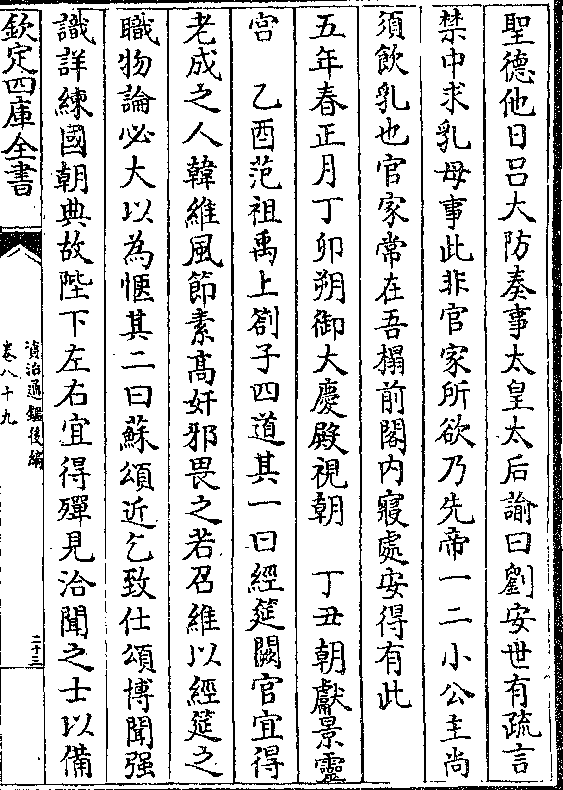 聖德他日呂大防奏事太皇太后諭曰劉安世有疏言
禁中求乳母事此非官家所欲乃先帝一二小公主尚
須飲乳也官家常在吾榻前閣内寢處安得有此
五年春正月丁卯朔御大慶殿視朝　丁丑朝獻景靈
宫　乙酉范祖禹上劄子四道其一曰經筵闕官宜得
老成之人韓維風節素髙奸邪畏之若召維以經筵之
職物論必大以為愜其二曰蘇頌近乞致仕頌博聞强
識詳練國朝典故陛下左右宜得殫見洽聞之士以備
欽定四庫全書
資治通鑑後編
卷八十九
二十三